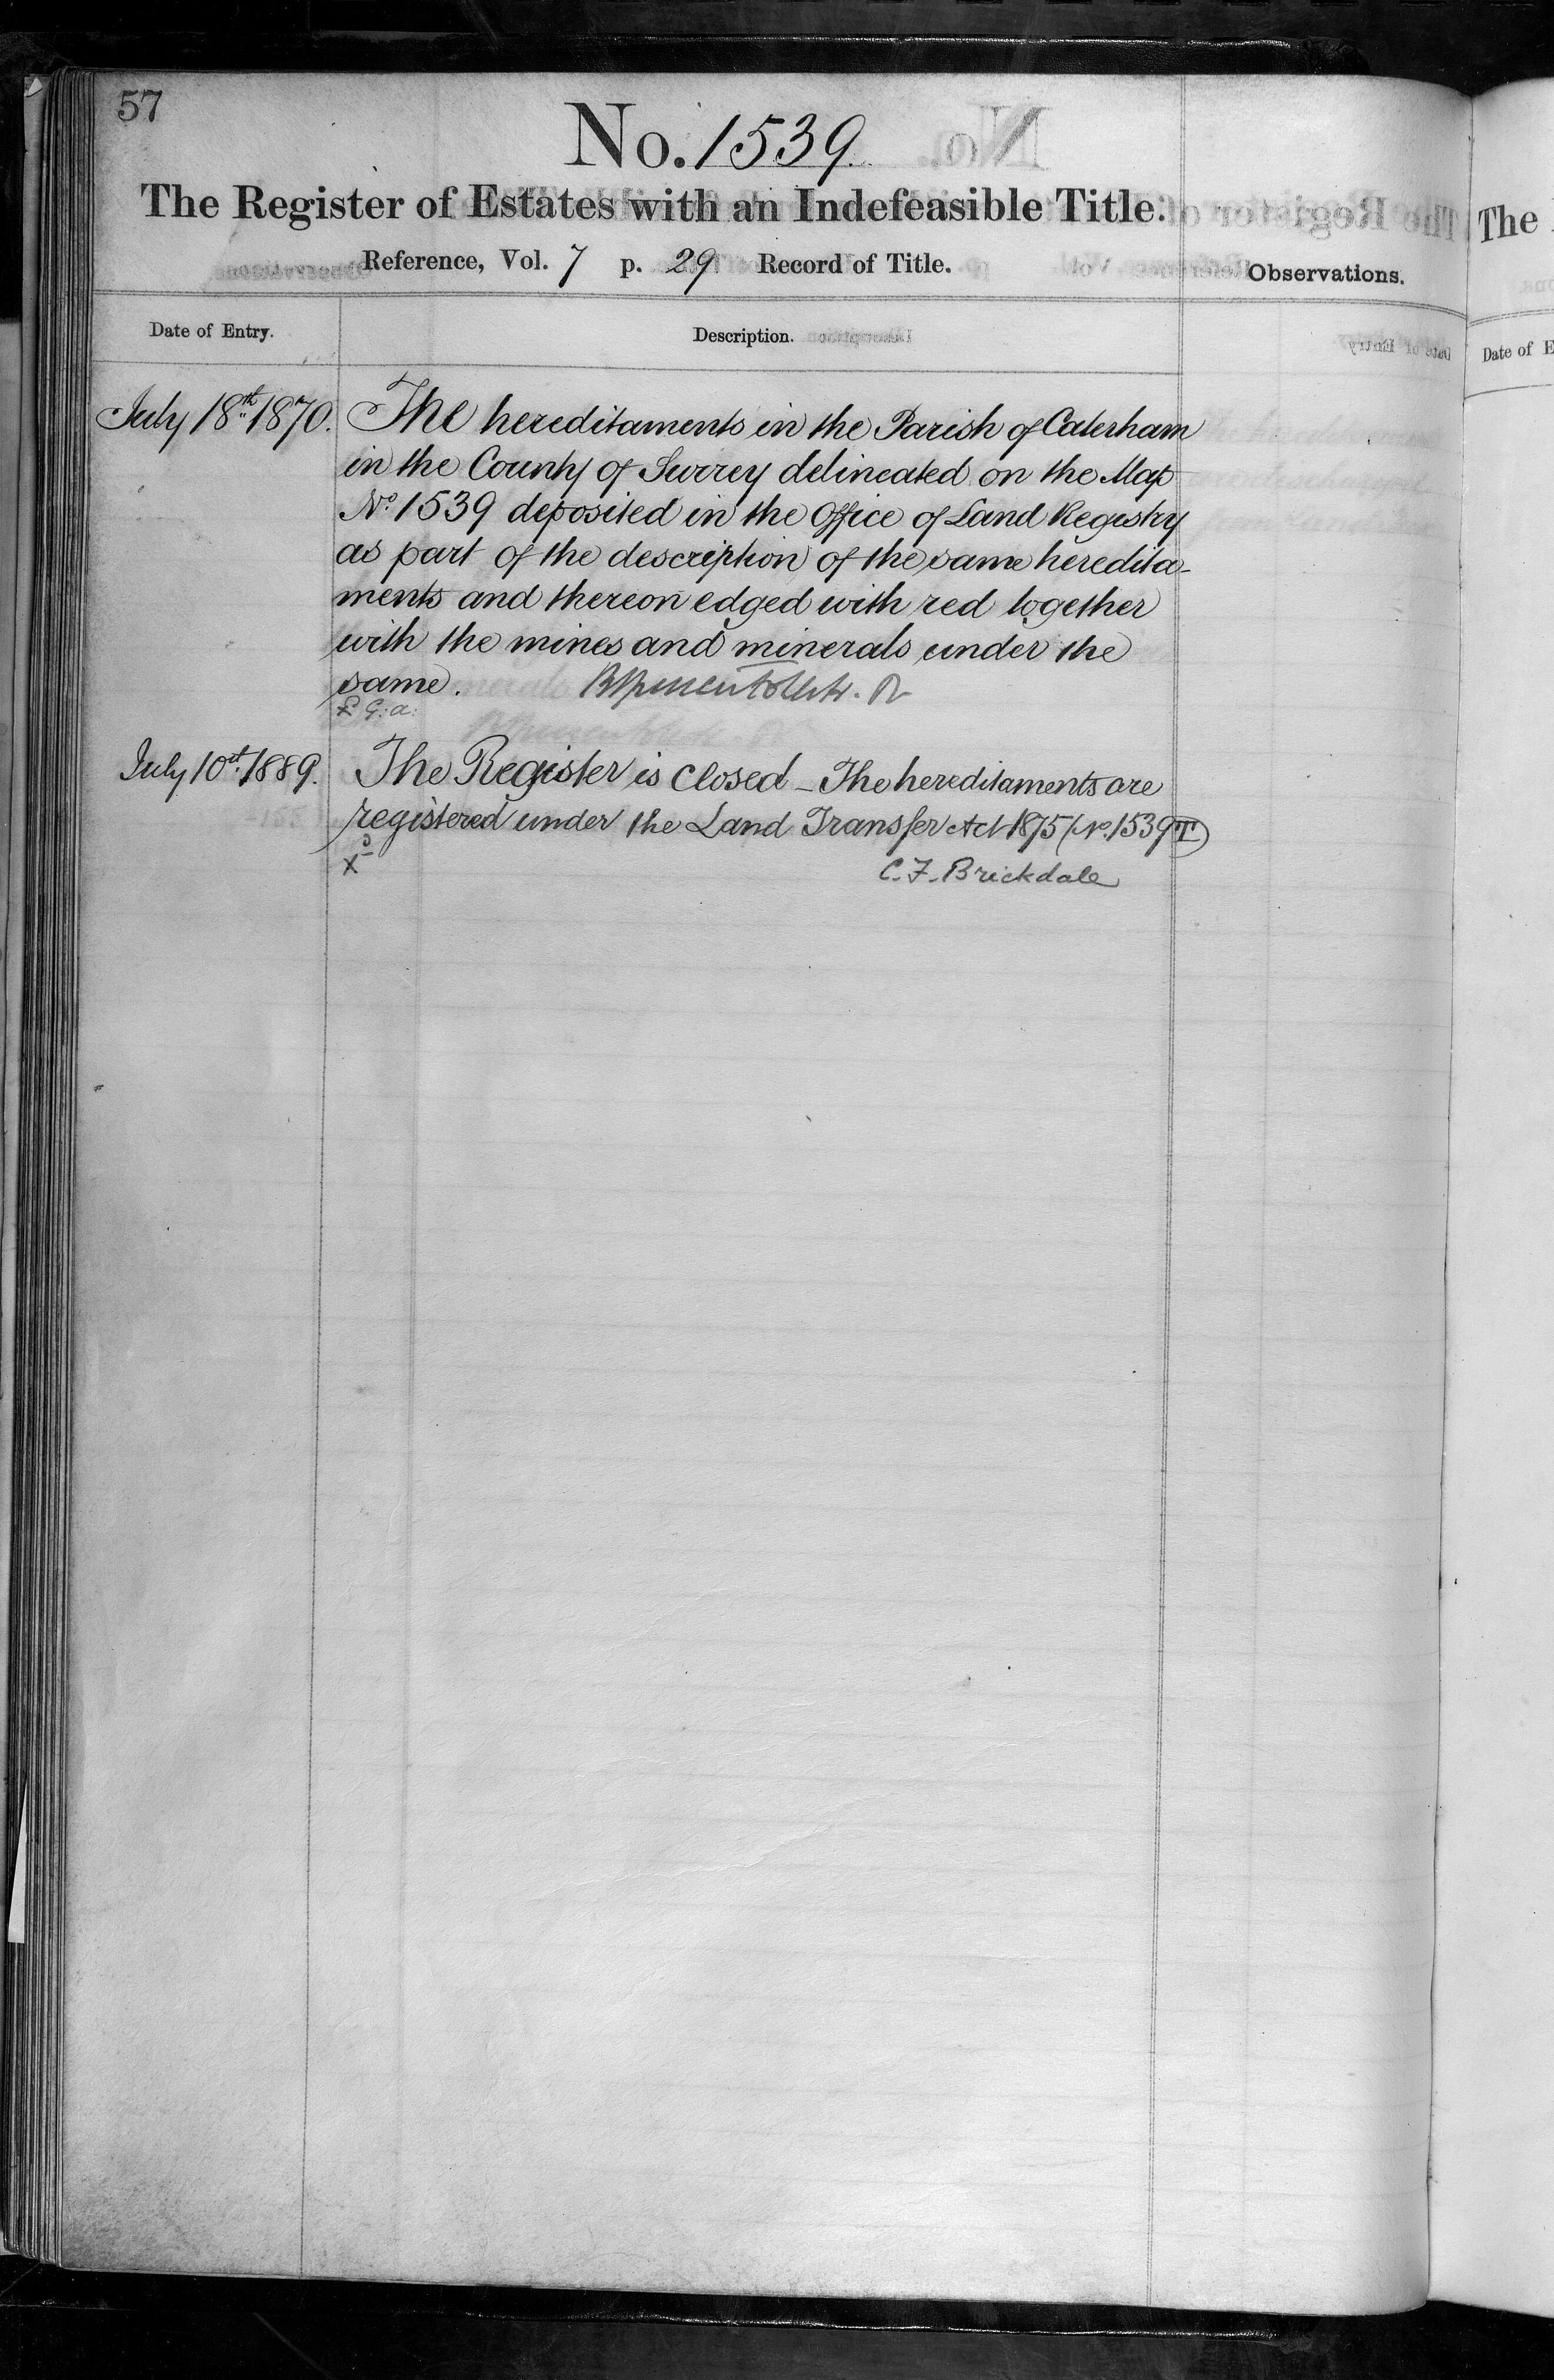 57
No. 1539.
The Register of Estates with an Indefeasible Title.
Reference, Vol. 7 p. 29 Record of Title.
Observations.
Date of Entry.
Description.
July 18th 1870.
The hereditaments in the Parish of Caterham
in the County of Surrey delineated on the Map
No. 1539 deposited in the Office of Land Registry
as part of the description of the same heredita-
ments and thereon edged with red together
with the mines and minerals under the
same.
July 10th 1889.
The Register is closed - The hereditaments are
registered under the Land Transfer Act 1875 (No. 1539 T)
C. F. Brickdale
The
Date of E